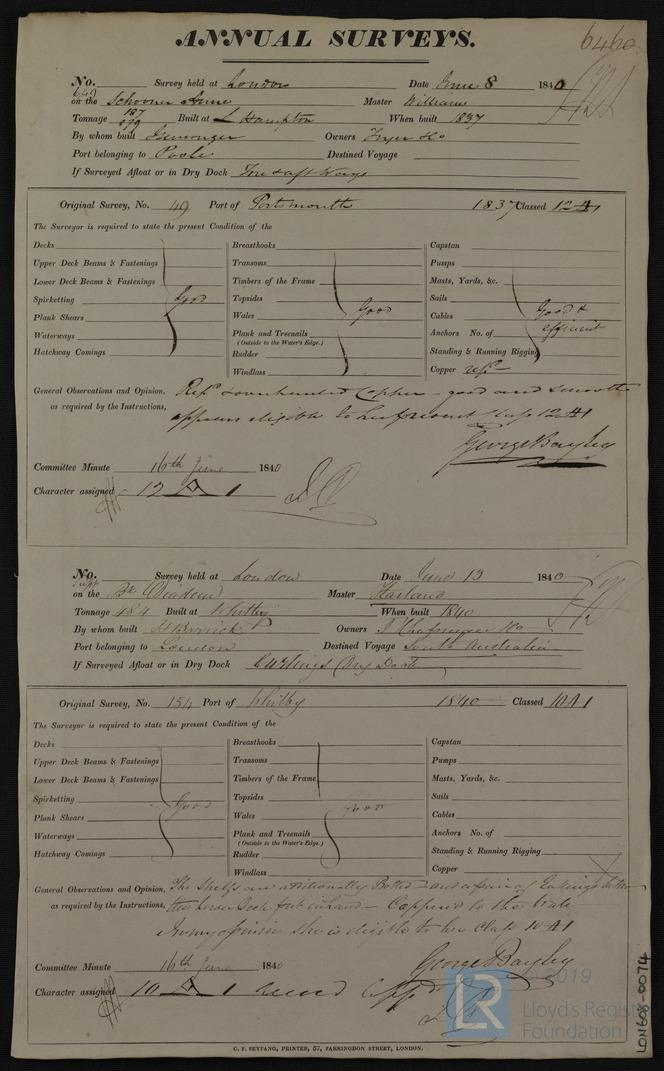 ANNUAL SURVEYS.
6460
No. 649 Survey held at London Date June 8 1840
on the Schooner Anne Master Williams
Tonnage 187 Built at L Hampton When built 1837
By whom built Owners Fryer & Co
Port belonging to Poole Destined Voyage
If Surveyed Afloat or in Dry Dock Fore & aft Ways
Original Survey, No. 49 Port of Portsmouth 1837 Classed 12 A1
The Surveyor is required to state the present Condition of the
Decks Breasthooks Capstan
Upper Deck Beams & Fastenings Transoms Pumps
Lower Deck Beams & Fastenings Timbers of the Frame Masts, Yards, &c.
Spirketting Good Topsides Sails
Plank Shears Wales Good Cables Good &
Waterways Plank and Treenails Anchors No. of efficient
(Outside to the Water's Edge.)
Hatchway Comings Rudder Standing & Running Rigging
Windlass Copper repd
General Observations and Opinion, Repd & overhauled Copper - good and smooth
as required by the Instructions, appears eligible to her present Class 12 A1
George Bayley
Committee Minute 16th June 1840
Character assigned 12 A 1
No. Survey held at London Date June 13 1840
on the Bk Diadem Master Harland
Tonnage 484 Built at Whitby When built 1840
By whom built Owners J Chapman & Co
Port belonging to London Destined Voyage South Australia
If Surveyed Afloat or in Dry Dock Curlings Dry Dock
Original Survey, No. 154 Port of Whitby 1840 Classed 10 A1
The Surveyor is required to state the present Condition of the
Decks Breasthooks Capstan
Upper Deck Beams & Fastenings Transoms Pumps
Lower Deck Beams & Fastenings Timbers of the Frame Masts, Yards, &c.
Spirketting Good Topsides Sails
Plank Shears Wales Good Cables
Waterways Plank and Treenails Anchors No. of
(Outside to the Water's Edge.)
Hatchway Comings Rudder Standing & Running Rigging
Windlass Copper
General Observations and Opinion, The Shelfs are additionally Bolted and a pair of
as required by the Instructions, the Lower Deck put in hand - Coppered to the
In my opinion she is eligible to her Class 10 A1
George Bayley
Committee Minute 16th June 1840
Character assigned 10 A 1
C. F. SEYFANG, PRINTER, 57, FARRINGDON STREET, LONDON.
LR © 2019
Lloyd's Register
Foundation
LON608-0074